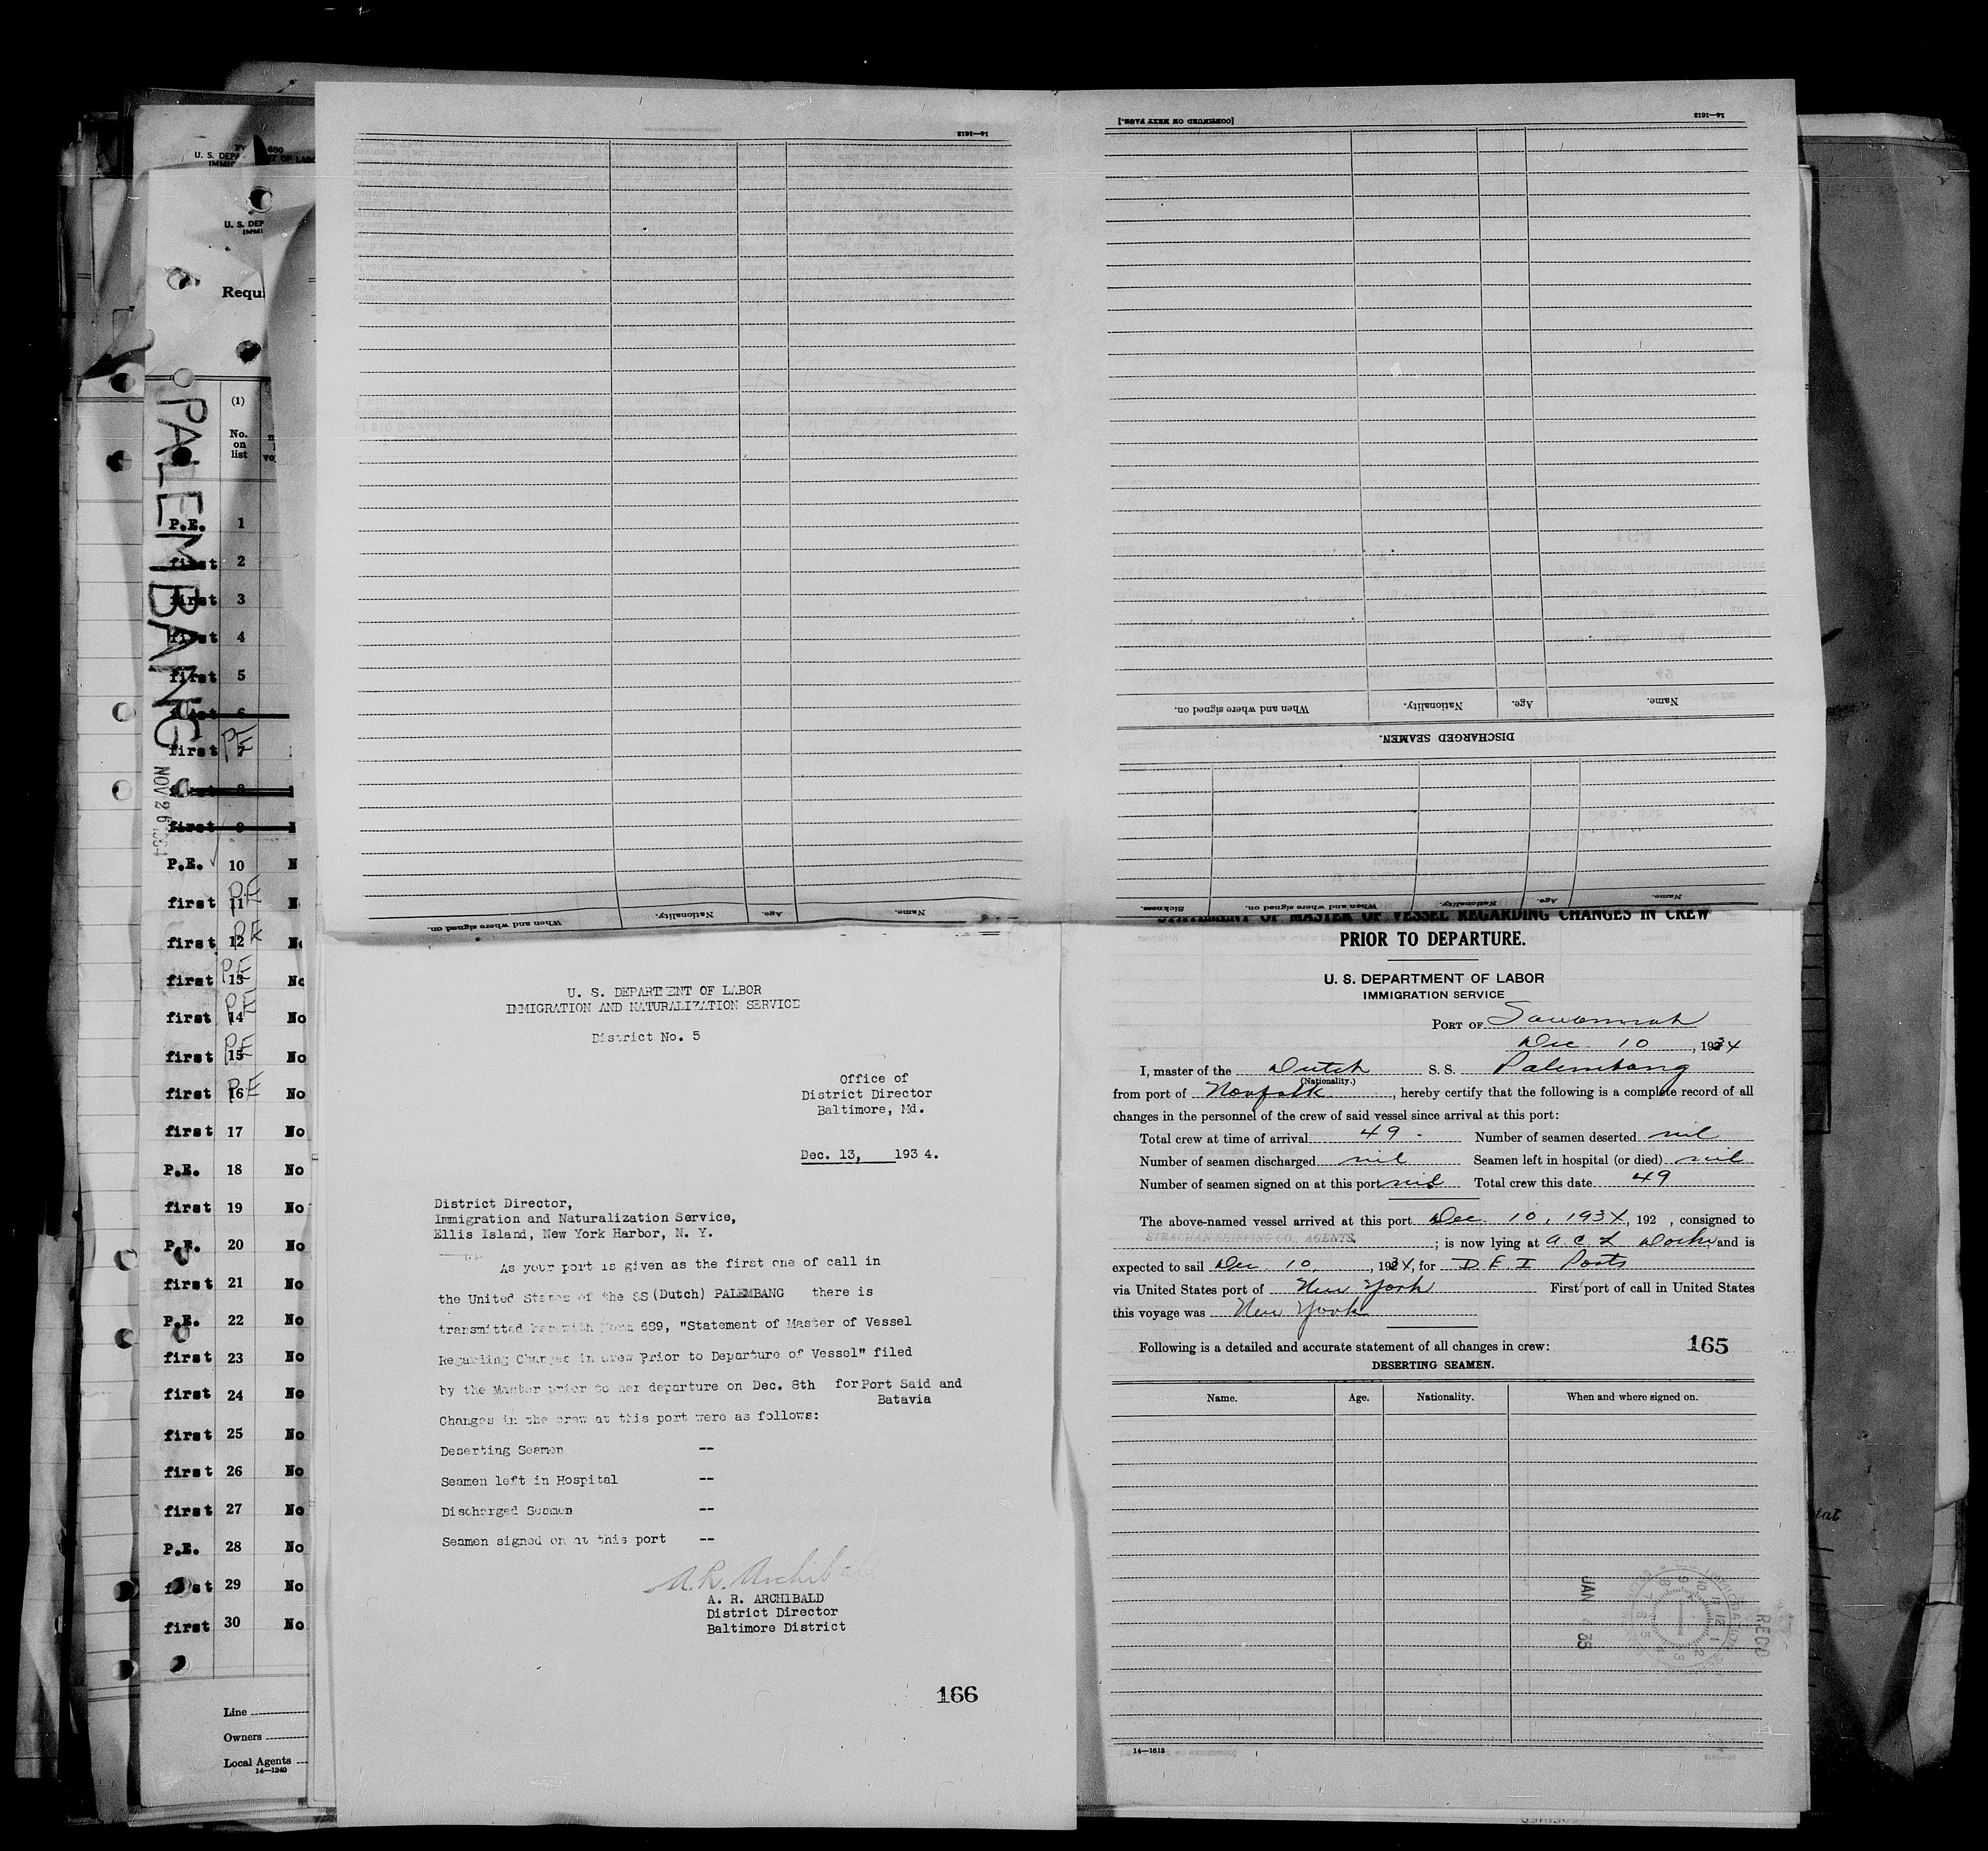 U. S. DEP
IMMI
Requi
PALEMBANG
NOV 26 1934
(1)
No.
on
list
P.E. 1
first 2
first 3
first 4
first 5
first 6
first 7 PE
first 8
first 9
P.E. 10 N
first 11 PE N
first 12 PE No
first 13 PE No
first 14 PE No
first 15 PE No
first 16 PE No
first 17 No
P.E. 18 No
first 19 No
P.E. 20 No
first 21 No
P.E. 22 No
first 23 No
first 24 No
first 25 No
first 26 No
first 27 No
P.E. 28 No
first 29 No
first 30 No
Line
Owners
Local Agents
14—1240
14—1613
When and where signed on. Nationality. Age. Name.
[CONTINUED ON NEXT PAGE.] 14—1613
When and where signed on. Nationality. Age. Name.
DISCHARGED SEAMEN.
Sickness. When and where signed on. Nationality. Age. Name.
U. S. DEPARTMENT OF LABOR
IMMIGRATION AND NATURALIZATION SERVICE
District No. 5
Office of
District Director
Baltimore, Md.
Dec. 13, 1934.
District Director,
Immigration and Naturalization Service,
Ellis Island, New York Harbor, N. Y.
As your port is given as the first one of call in
the United States of the SS (Dutch) PALEMBANG there is
transmitted herewith Form 689, "Statement of Master of Vessel
Regarding Changes in Crew Prior to Departure of Vessel" filed
by the Master prior to her departure on Dec. 8th for Port Said and
Batavia
Changes in the crew at this port were as follows:
Deserting Seamen --
Seamen left in Hospital --
Discharged Seamen --
Seamen signed on at this port --
A. R. Archibald
A. R. ARCHIBALD
District Director
Baltimore District
166
STATEMENT OF MASTER OF VESSEL REGARDING CHANGES IN CREW
PRIOR TO DEPARTURE.
U. S. DEPARTMENT OF LABOR
IMMIGRATION SERVICE
PORT OF Savannah
Dec. 10, 1934
I, master of the Dutch S. S. Palembang
(Nationality.)
from port of Norfolk, hereby certify that the following is a complete record of all
changes in the personnel of the crew of said vessel since arrival at this port:
Total crew at time of arrival 49. Number of seamen deserted nil
Number of seamen discharged nil Seamen left in hospital (or died) nil
Number of seamen signed on at this port nil Total crew this date 49
The above-named vessel arrived at this port Dec 10, 1934, 192 , consigned to
STRACHAN SHIPPING CO., AGENTS. ; is now lying at A. C. L Docks, and is
expected to sail Dec 10, 1934, for D. E. I Ports
via United States port of New York First port of call in United States
this voyage was New York
Following is a detailed and accurate statement of all changes in crew: 165
DESERTING SEAMEN.
Name. Age. Nationality. When and where signed on.
JAN 35
RECD
14—1613